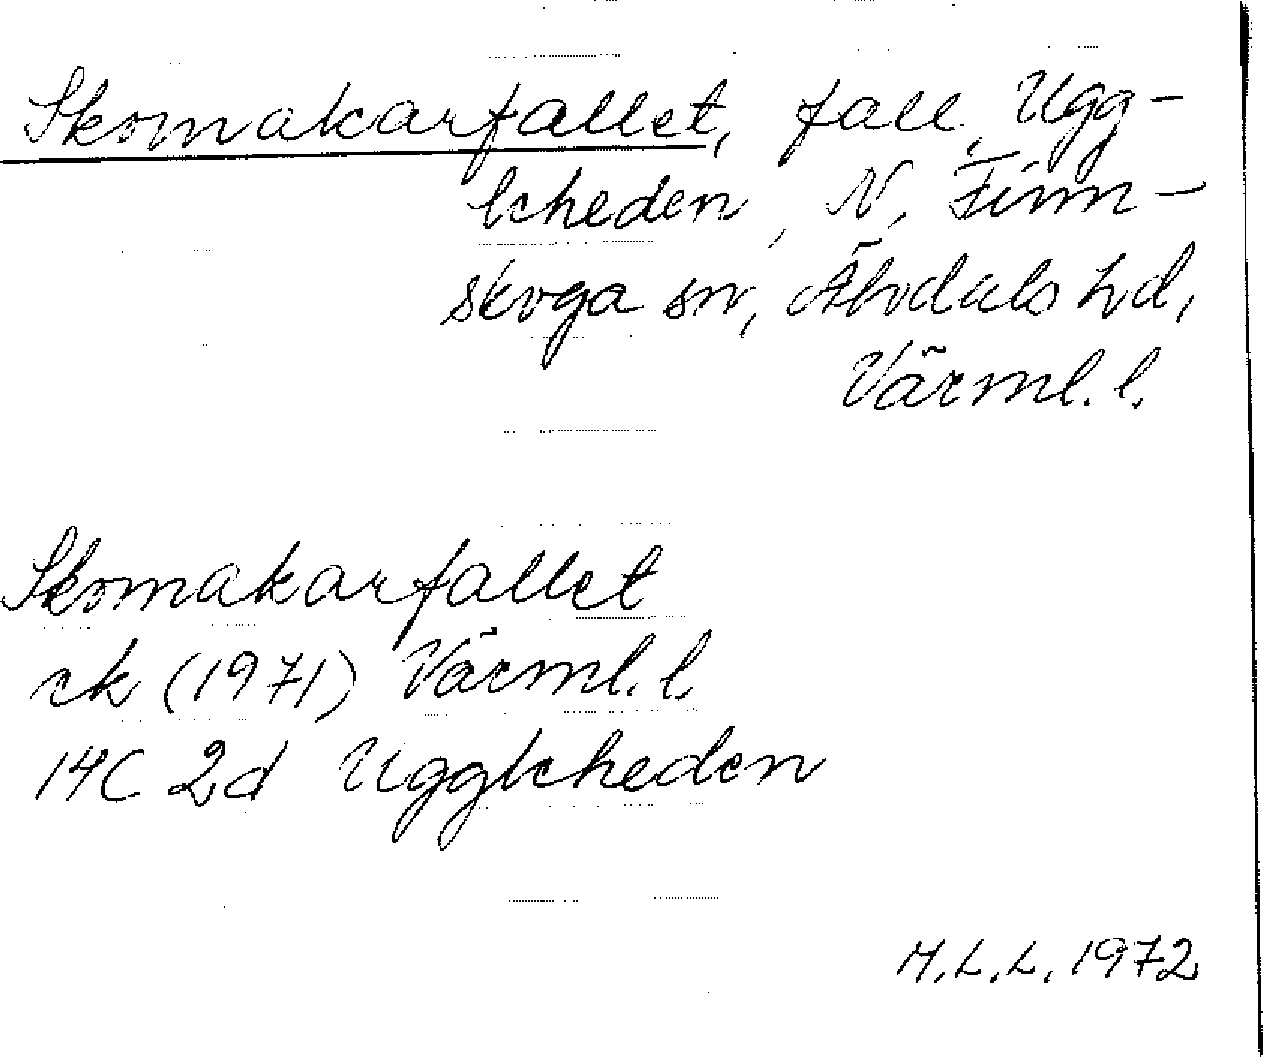 Skomakarfallet, fall, Ugg-
leheden, N. Finn-
skoga sn, Älvdals hd,
Värml. l.
Skomakarfallet
ek (1971) Värml. l.
14C 2d Uggleheden
M.L.L. 1972